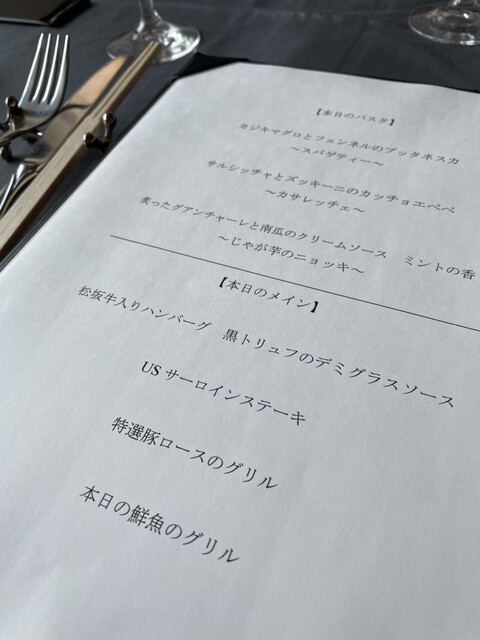 【本日のパスタ】
カジキマグロとフェンネルのプッタネスカ
～スパゲティー～
サルシッチャとズッキーニのカッチョエペペ
～カサレッチェ～
炙ったグアンチャーレと南瓜のクリームソース　ミントの香
～じゃが芋のニョッキ～
【本日のメイン】
松坂牛入りハンバーグ　黒トリュフのデミグラスソース
US サーロインステーキ
特選豚ロースのグリル
本日の鮮魚のグリル